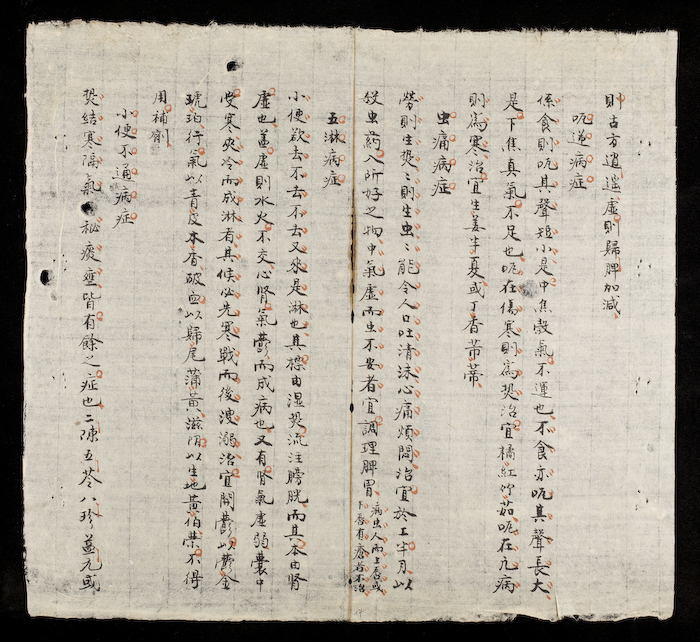 則古方逍遥虛則歸脾加減
呃逆病症
係食則呃其聲短小是中焦穀氣不運也不食亦呃其聲長大
是下焦真氣不足也呃在傷寒則為熱治宜橘紅竹茹呃在久病
則為寒治宜生姜半夏或丁香蒂蒂
虫痛病症
勞則生熱〻則生虫〻能令人口吐清涎心痛煩悶治宜於上半月以
殺虫葯入所好之物中氣虛而虫不安者宜調理脾胃
病虫人而上唇或
下唇有瘡若不治
五淋病症
小便欲去不去不去又來是淋也其標由湿熱流注膀胱而其本由腎
虛也蓋虛則水火不交心腎氣鬱而成病也又有腎氣虛弱囊中
受寒夾冷而成淋者其候必先寒戰而後溲溺治宜開鬱以鬱金
琥珀行氣以青皮木香破血以歸尾蒲黃滋陰以生地黃伯荣不得
用補劑
小便不通病症
熱結寒隔氣秘痰壅皆有餘之症也二陳五苓八珍益元或